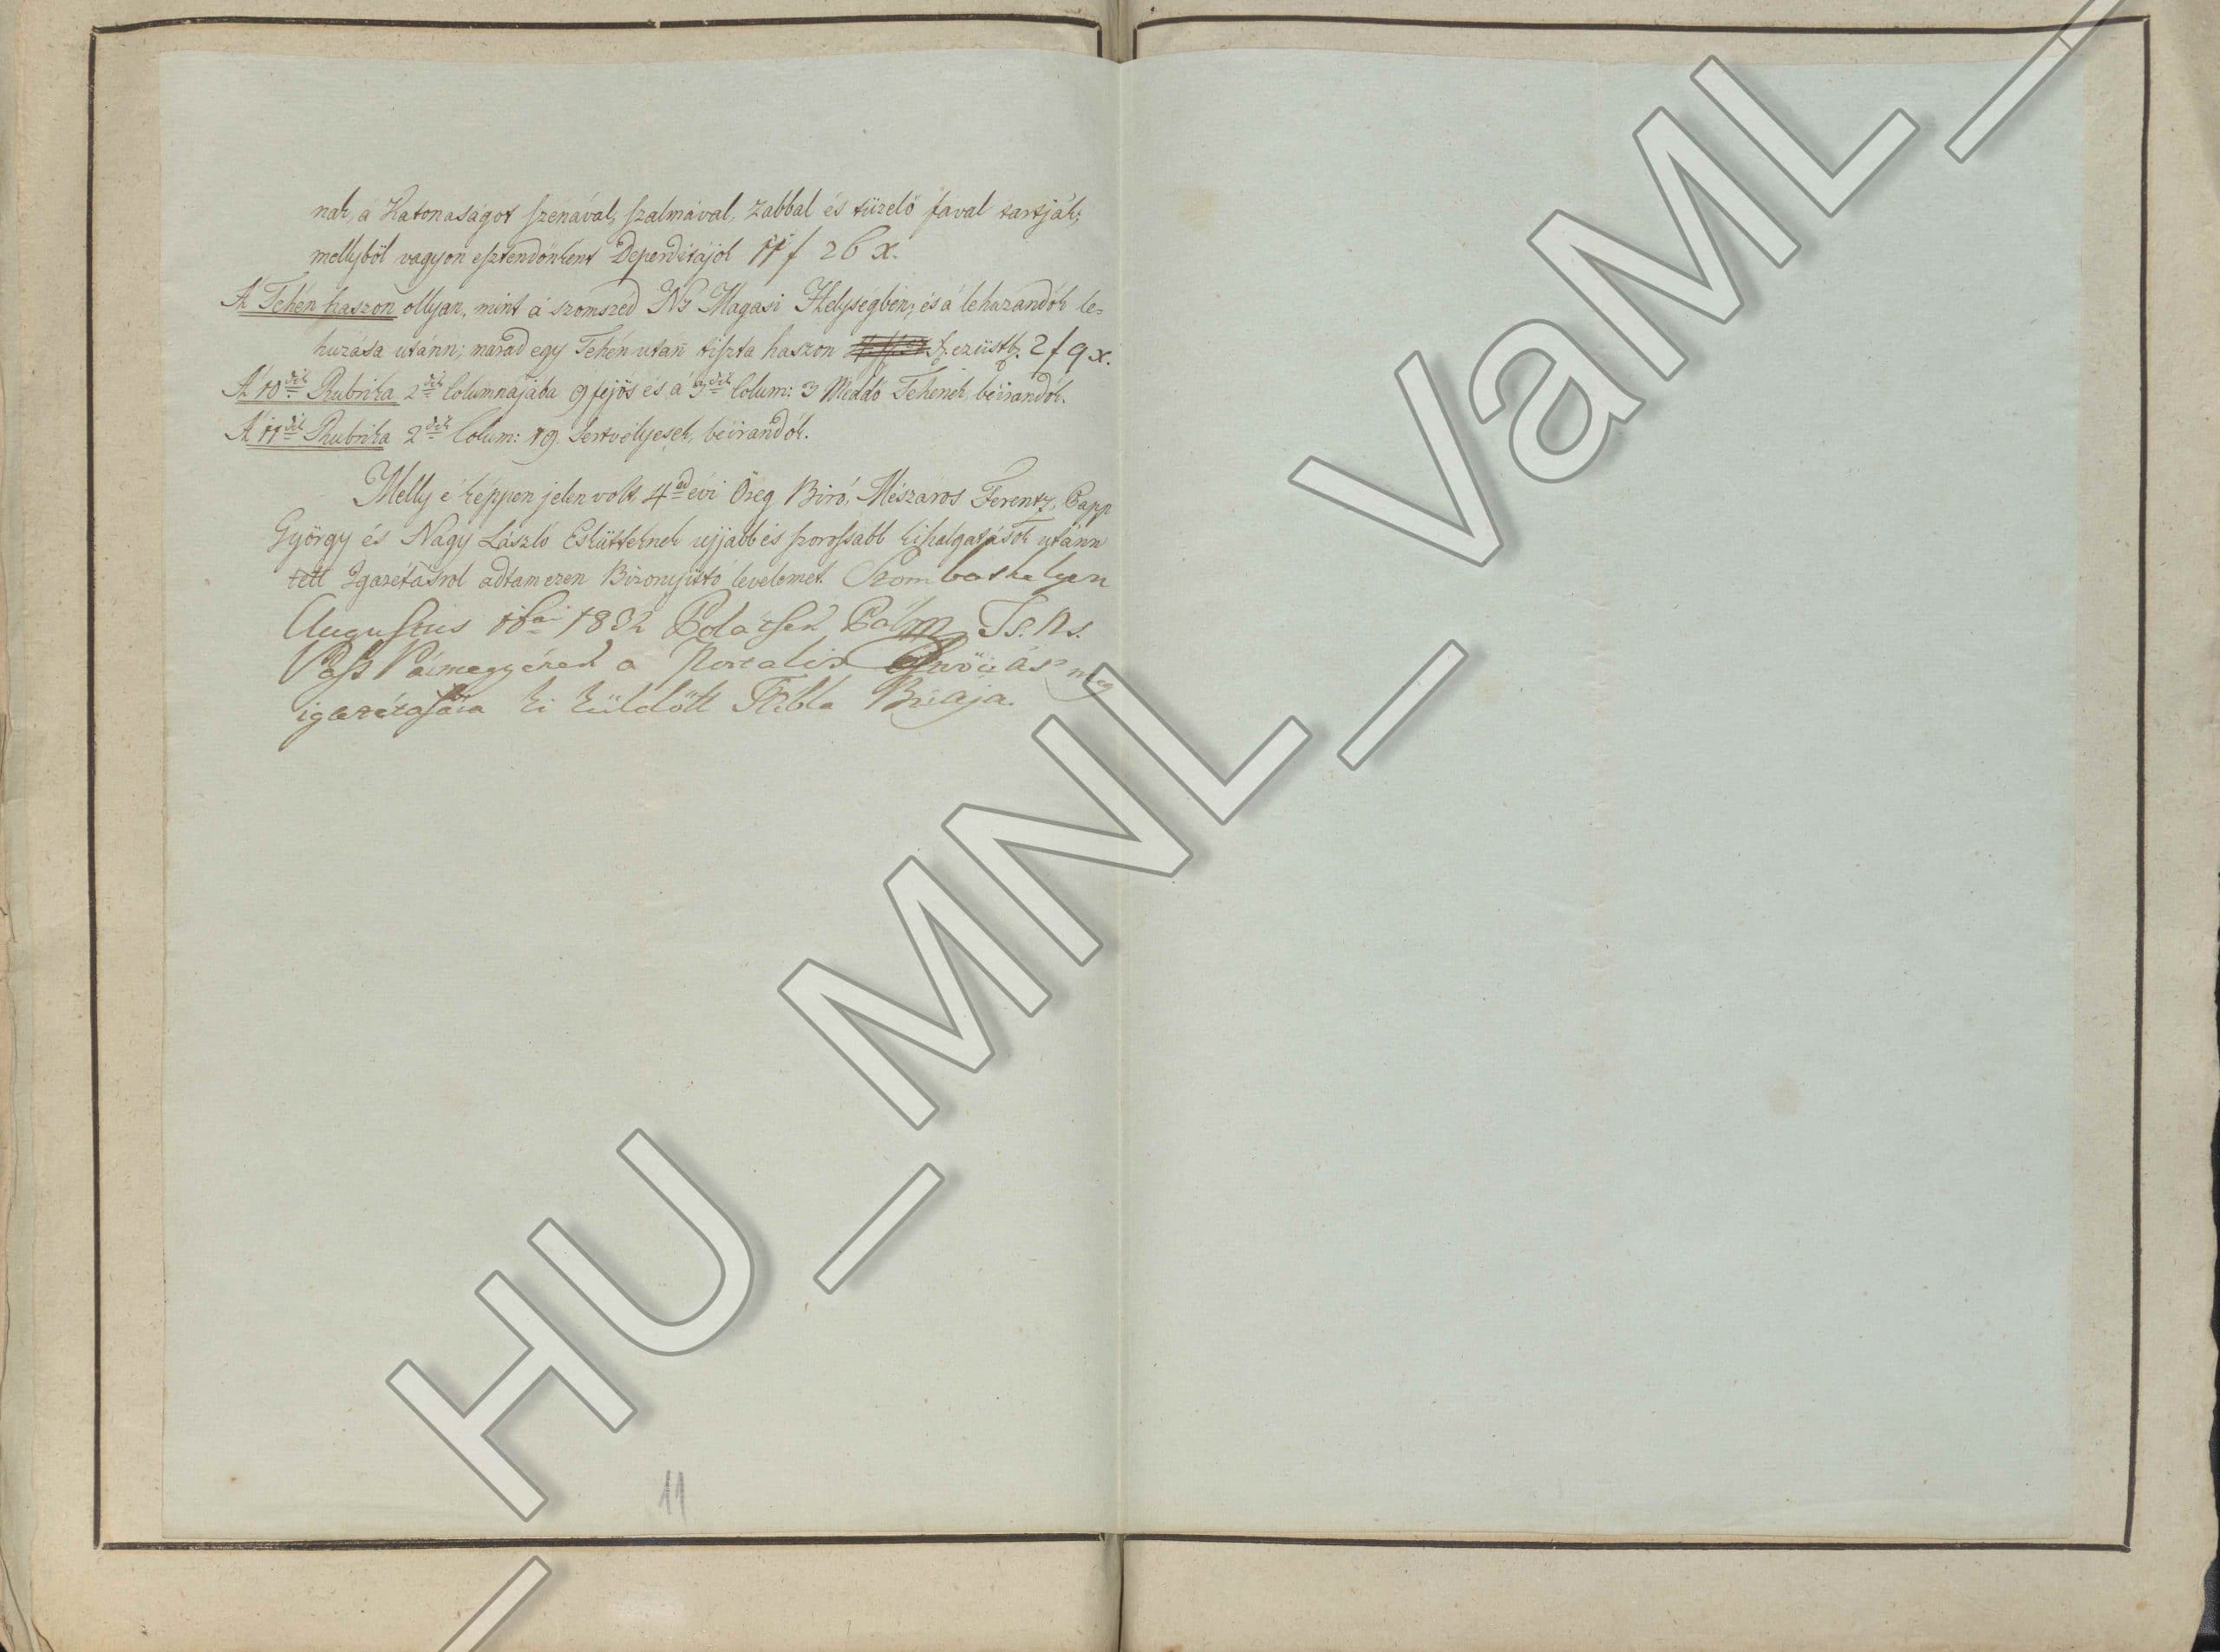 nak, á Katonaságot szenával, szalmával, zabbal és tüzelő faval tartják;
mellyböl vagyon esztendönként Deperditájol 11 f 26 x.
A Tehén haszon ollyan, mint á szomszéd Ns Magasi Helységben; és á lehuzandók le=
huzása utánn; marad egy Tehén utan̄ tiszta haszon ezüstb. 2 f 9 x.
A' 10dik Rubrika 2dik Columnájába 9 fejös és á 3dik Colum: 3 Meddö Tehenek, béirandók.
A' 11dik Rubrika 2dik Colum: 19. Sertvélyesek, béirandók.
Melly é képpen jelen volt 4ed évi Öreg Biró, Mészáros Ferentz, Papp
György és Nagy László Eskütteknek ujjabb és szorossabb kihalgatások utánn
tett Igazétásrol adtam ezen Bizonyitó levelemet Szombathelyen
Augustus 16án 1832 Polatsek Pál Ts. Ns.
Vass Vármegyének a Portalis meg
igazétására ki küldött Tábla Birája.
11
HU_MNL_VaML_